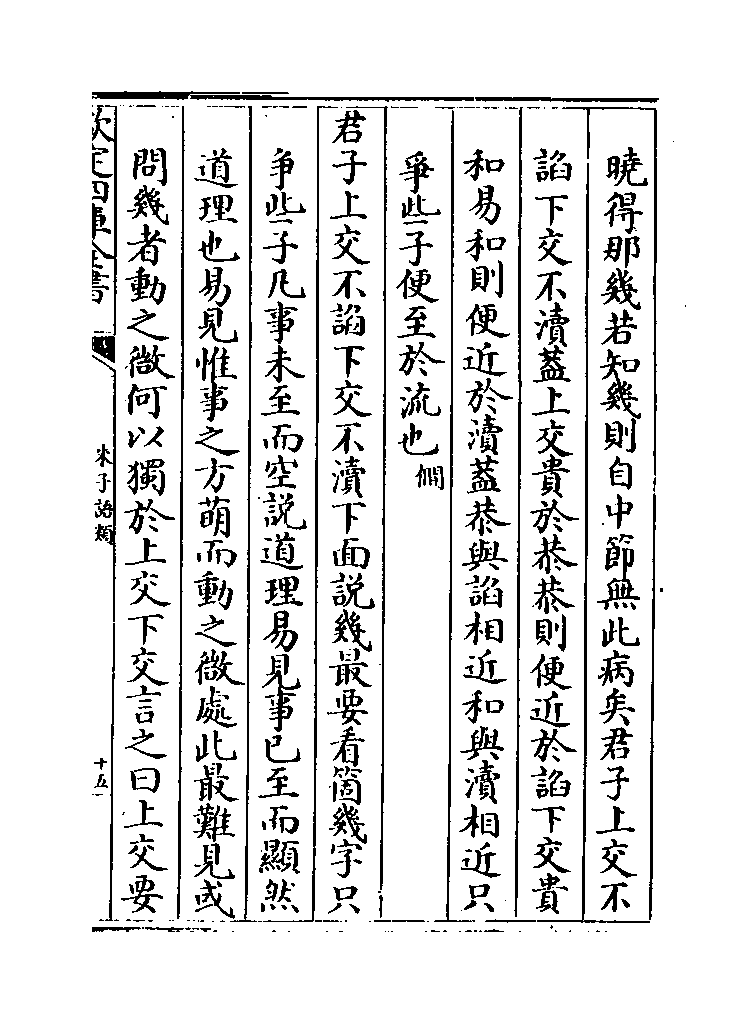 曉得那幾若知幾則自中節無此病矣君子上交不
諂下交不瀆葢上交貴於恭恭則便近於諂下交貴
和易和則便近於瀆葢恭與諂相近和與瀆相近只
爭些子便至於流也僩
君子上交不諂下交不瀆下面説幾最要看箇幾字只
争些子凡事未至而空説道理易見事已至而顯然
道理也易見惟事之方萌而動之微處此最難見或
問幾者動之微何以獨於上交下交言之曰上交要
欽定四庫全書
朱子語類
十五